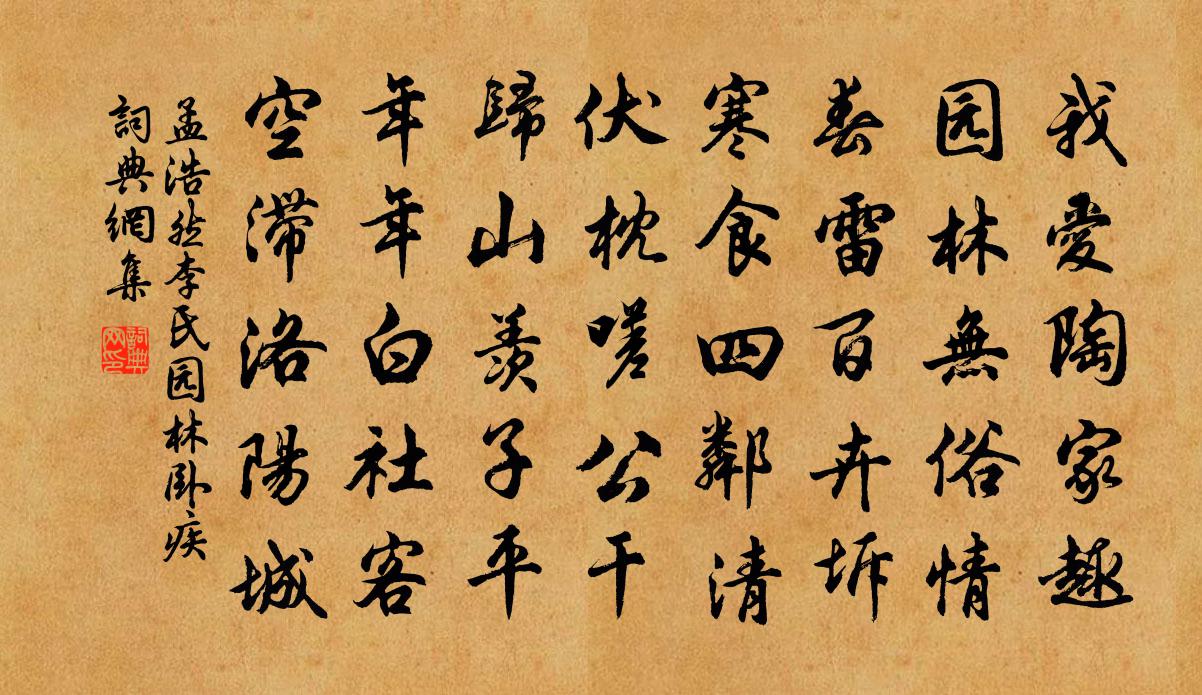 我愛陶家趣
园林無俗情
春雷百卉坼
寒食四鄰清
伏枕嗟公干
歸山羨子平
年年白社客
空滞洛陽城
孟浩然李氏园林卧疾
詞典網集
詞典网印